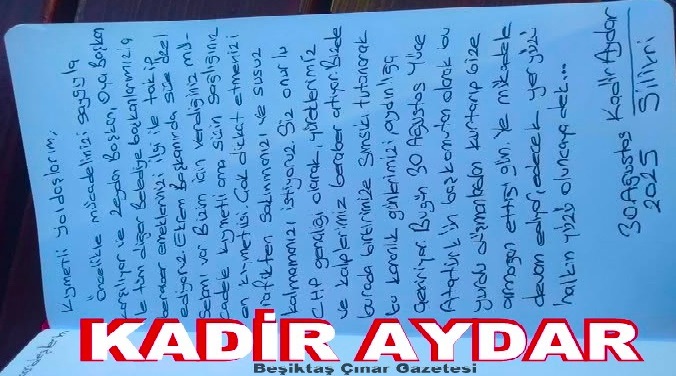 Kıymetli Yoldaşlarım,
Öncelikle mücadelenizi saygıyla
karşılıyor ve Zeydan Başkan, Oya Başkan
ile tüm diğer Belediye başkanlarımızla
beraber emeklerinizi ilgi ile takip
ediyoruz Ekrem Başkanımda size özel
Selamı var Bizim için verdiğiniz mü-
cadele kıymetli ama sizin sağlığınız
en kıymetlisi. Çok dikkat etmenizi
trafikten sakınmanızı ve susuz
kalmamanızı istiyoruz. Siz onurlu
CHP gençliği olarak yüreklerimiz
ve kalplerimiz beraber atıyor. Bizde
burada birbirimize Sımsıkı tutunarak
bu karanlık günlerimizi aydınlığa
çeviriyor. Bugün 30 Ağustos Yüce
Atatürk'ün başkomutan olarak bu
yurdu düşmanlardan kurtarıp bize
armağan ettiği gün. Ve mücadele
devam ediyor, edecek yeryüzü
halkın yüzü oluncaya dek...
30 Ağustos Kadir Aydar
2025 Silivri
KADİR AYDAR
Beşiktaş Çınar Gazetesi